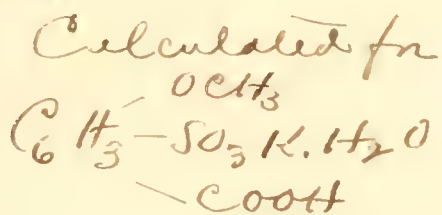 Calculated for
OCH₃
C₆H₃-SO₃K.H₂O
COOH